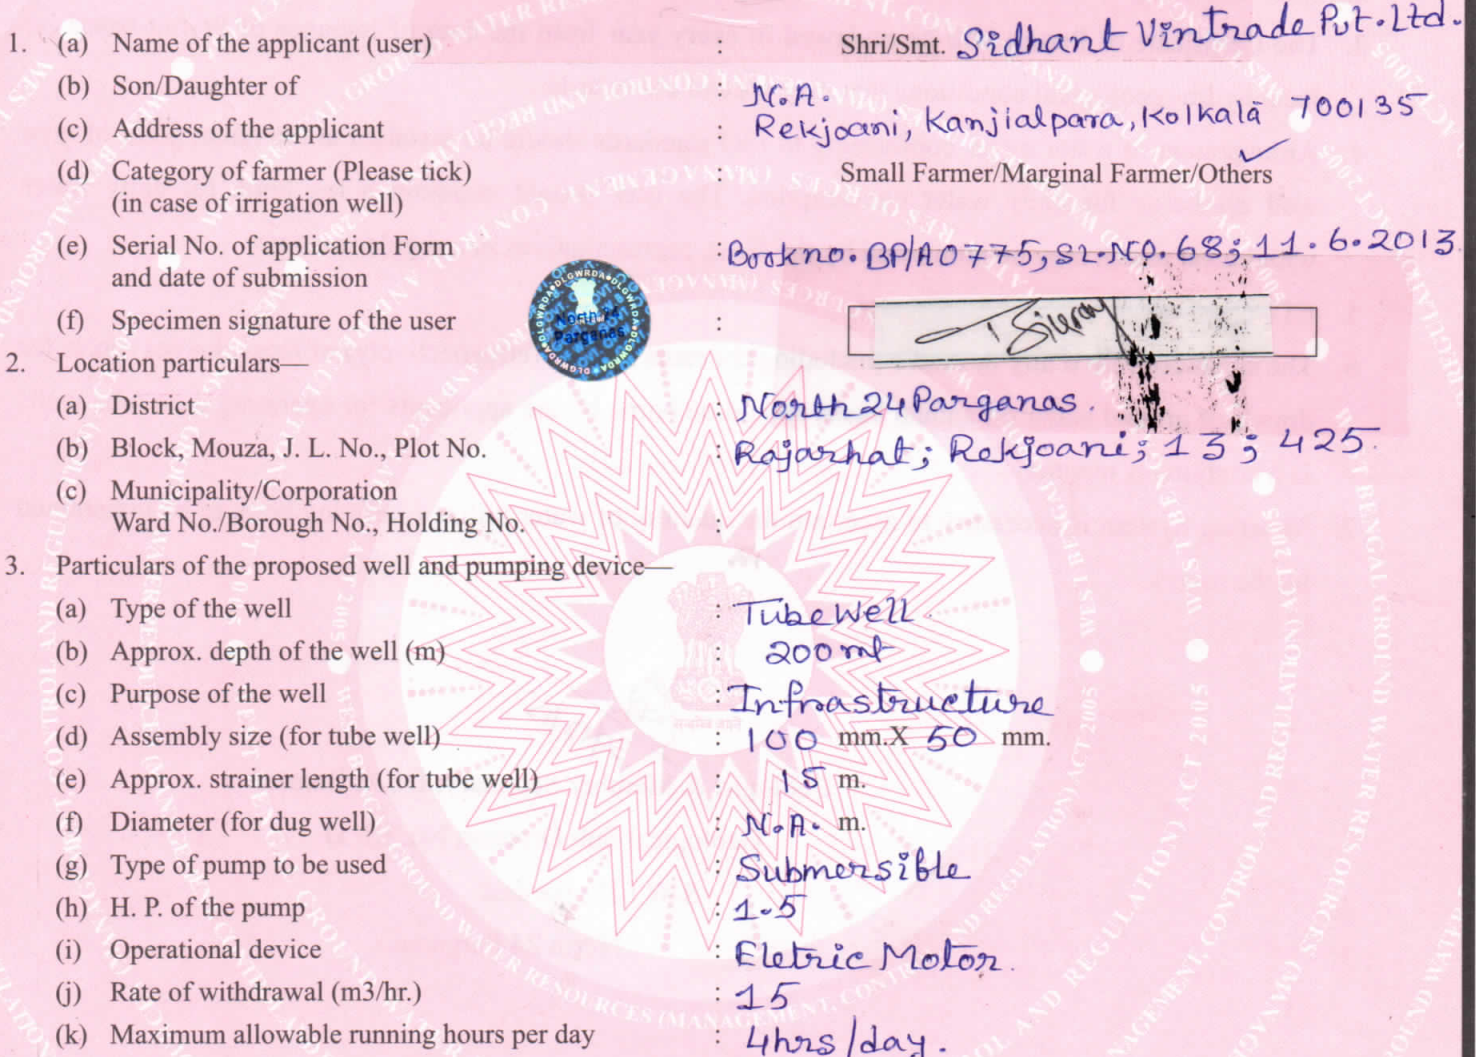 1. (a) Name of the applicant (user) : Shri/Smt. Sidhant Vintrade Pvt. Ltd.
(b) Son/Daughter of : N.A.
(c) Address of the applicant : Rekjoani, Kanjialpara, Kolkata 700135
(d) Category of farmer (Please tick) : Small Farmer/Marginal Farmer/Others
(in case of irrigation well)
(e) Serial No. of application Form : Book no. BP/A0775, SL. NO. 68; 11.6.2013
and date of submission
(f) Specimen signature of the user :
North 24
Parganas
2. Location particulars—
(a) District : North 24 Parganas.
(b) Block, Mouza, J. L. No., Plot No. : Rajarhat; Rekjoani; 13; 425.
(c) Municipality/Corporation
Ward No./Borough No., Holding No. :
3. Particulars of the proposed well and pumping device—
(a) Type of the well : Tube Well.
(b) Approx. depth of the well (m) : 200 mt
(c) Purpose of the well : Infrastructure
(d) Assembly size (for tube well) : 100 mm.X 50 mm.
(e) Approx. strainer length (for tube well) : 15 m.
(f) Diameter (for dug well) : N.A. m.
(g) Type of pump to be used : Submersible
(h) H. P. of the pump : 1.5
(i) Operational device : Eletric Motor.
(j) Rate of withdrawal (m3/hr.) : 15
(k) Maximum allowable running hours per day : 4hrs/day.